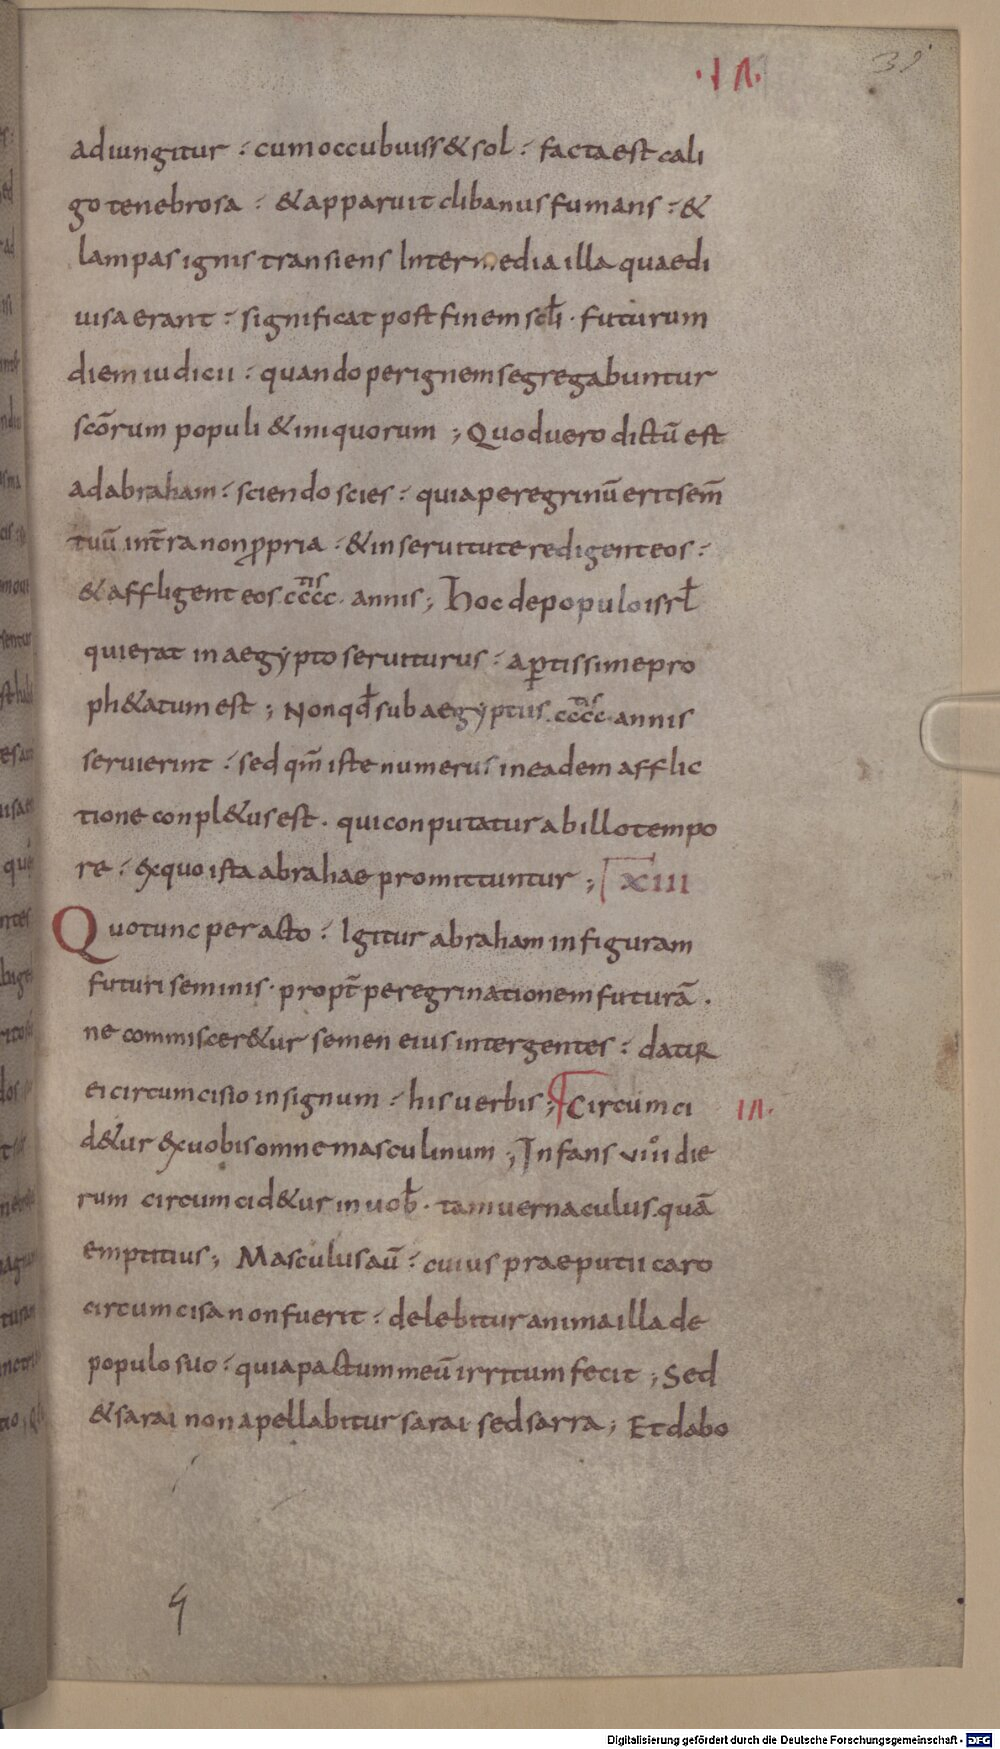 ·IЛ·
39
adiungitur : cum occubuiss& sol : facta est cali
go tenebrosa : & apparuit clibanus fumans : &
lampas ignis transiens Inter media illa quae di
uisa erant : significat post finem scłi · futurum
diem iudicii : quando per ignem segregabuntur
scōrum populi & iniquorum ; Quod uero dictū est
ad abraham : sciendo scies : quia peregrinū erit sem̄
tuū in t̄ra non ꝓpria : & in seruitute redigent eos :
& affligent eos cccc tis annis ; Hoc de populo isrł
qui erat in aegypto seruiturus : aꝑtissime pro
ph&atum est ; Non qđ sub aegyptiis cccc tis annis
seruierint : sed qm̄ iste numerus in eadem afflic
tione conpl&us est · qui conputatur ab illo tempo
re : ex quo ista abrahae promittuntur ; XIII
Quo tunc peracto : Igitur abraham in figuram
futuri seminis · propt̄ peregrinationem futurā ·
ne commiscer&ur semen eius inter gentes : datur
ei circumcisio in signum : his uerbis ; Circumci IЛ·
d&ur ex uobis omne masculinum ; Infans uiiio die
rum circumcid&ur in uoƀ · tam uernaculus quā
emptitius ; Masculus aū : cuius praeputii caro
circumcisa non fuerit : delebitur anima illa de
populo suo : quia pactum meū irritum fecit ; Sed
& sarai non apellabitur sarai sed sarra ; Et dabo
Digitalisierung gefördert durch die Deutsche Forschungsgemeinschaft - DFG